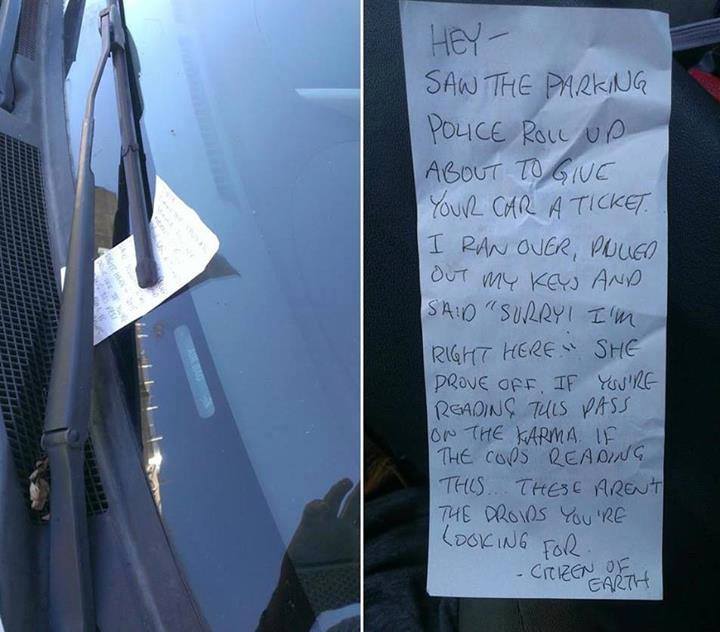 HEY-
SAW THE PARKING
POLICE ROLL UP
ABOUT TO GIVE
YOUR CAR A TICKET.
I RAN OVER, PULLED
OUT MY KEYS AND
SAID "SORRY! I'M
RIGHT HERE." SHE
DROVE OFF. IF YOU'RE
READING THIS PASS
ON THE KARMA. IF
THE COPS READING
THIS... THESE AREN'T
THE DROIDS YOU'RE
LOOKING FOR.
- CITIZEN OF
EARTH